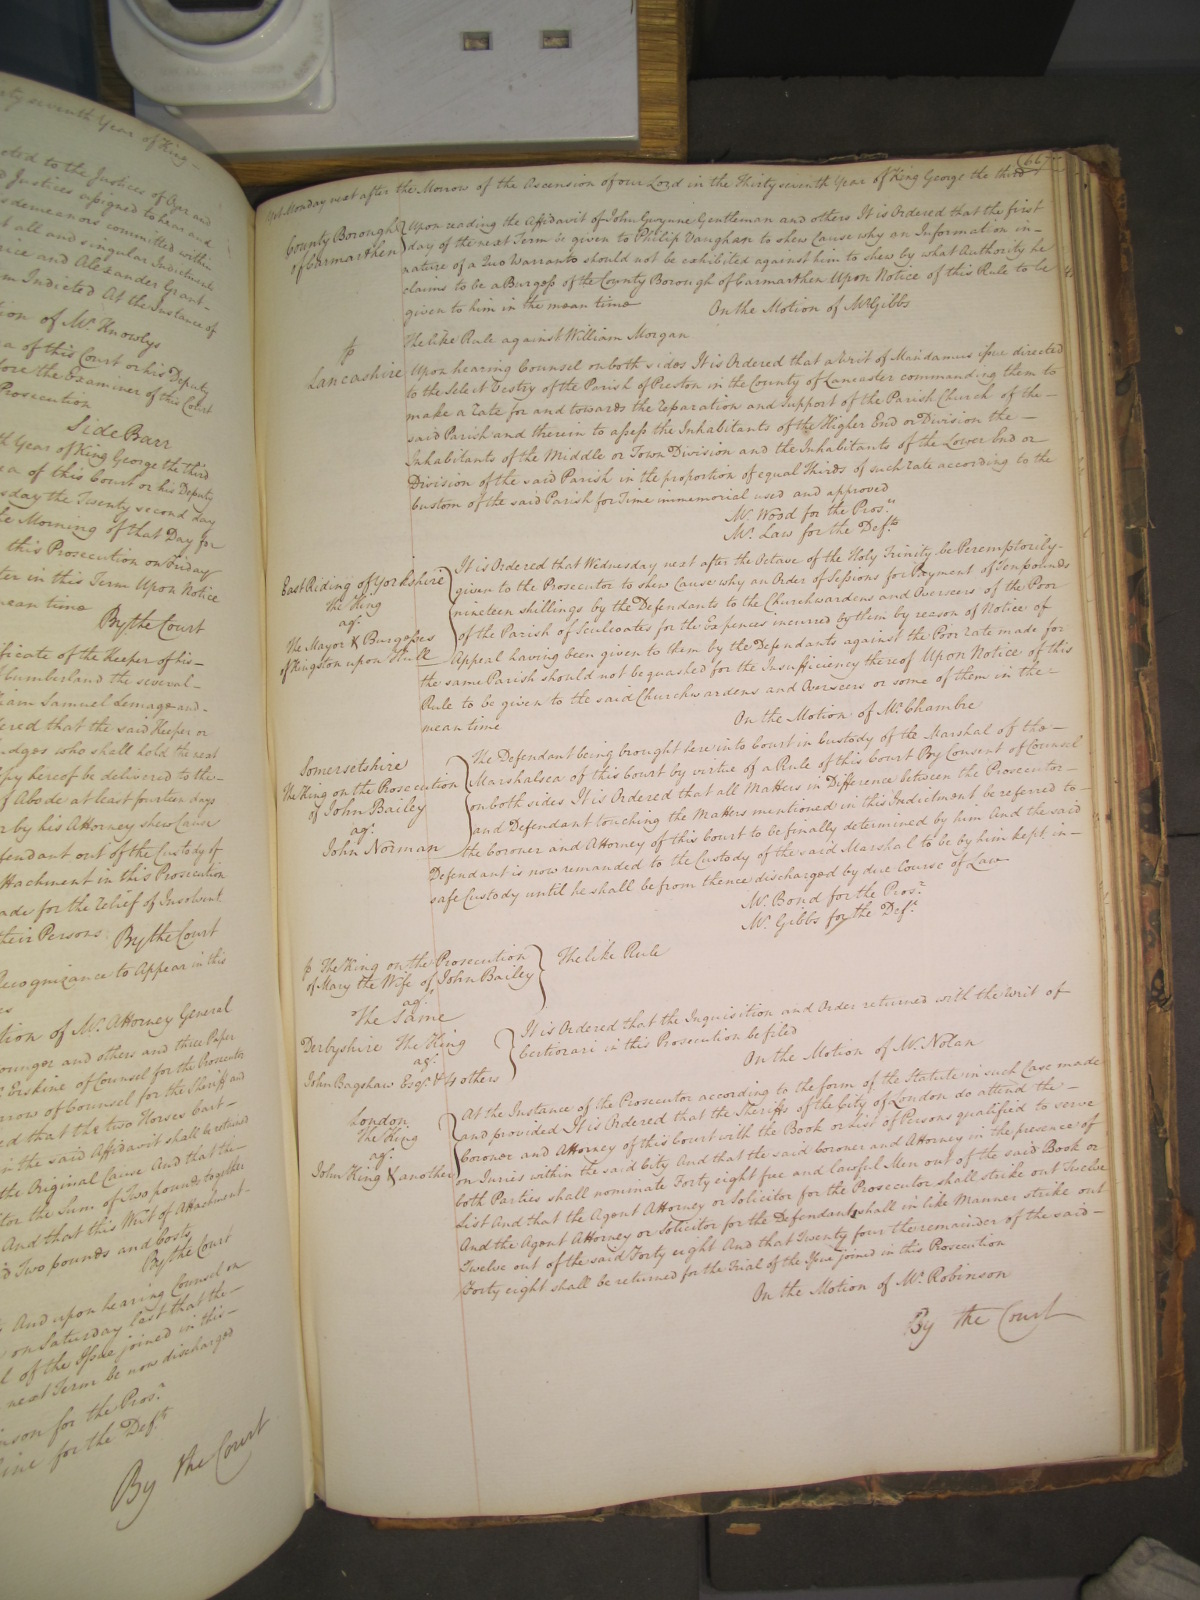 ty seventh Year of King
oted to the Justices of Oyer and
d Justices assigned to hear and
isdemeanors committed within
t all and singular Indictments
rice and Alexander Grant
m Indicted At the Instance of
ion of Mr. Knowlys
a of this Court or his Deputy
fore the Examiner of this Court
Prosecution
Side Barr
th Year of King George the third
ea of this Court or his Deputy
sday the Twenty second day
he Morning of that Day for
this Prosecution on Friday
ter in this Term Upon Notice
mean time
By the Court
ificate of the Keeper of his
Cumberland the several
liam Samuel Gemage and
dered that the said Keeper or
udges who shall hold the next
opy hereof be delivered to the
f Abode at least fourteen days
r by his Attorney shew Cause
fendant out of the Custody of
ttachment in this Prosecution
ade for the Relief of Insolvent
their Persons. By the Court
Recognizance to Appear in this
tion of Mr. Attorney General
ounger and others and three Paper
Erskine of Counsel for the Prosecutor
rrow of Counsel for the Sheriff and
ed that the two Horses cart
in the said Affidavit shall be returned
the Original Cause And that the
tor the Sum of Two pounds together
And that this Writ of Attachment
d Two pounds and Costs
By the Court
And upon hearing Counsel on
on Saturday last that the
l of the Issue joined in this
next Term be now discharged
inson for the Prosr.
ine for the Deft.
By the Court
(667
Yet Monday next after the Morrow of the Ascension of our Lord in the Thirty seventh Year of King George the third
County Borough of Carmarthen
Upon reading the Affidavit of John Gwynne Gentleman and others It is Ordered that the first
day of the next Term is given to Philip Vaughan to shew Cause why an Information in
nature of a Quo Warranto should not be exhibited against him to shew by what Authority he
claims to be a Burgess of the County Borough of Carmarthen Upon Notice of this Rule to be
given to him in the mean time
On the Motion of Mr. Gibbs
The like Rule against William Morgan
Lancashire
Upon hearing Counsel on both sides It is Ordered that a Writ of Mandamus issue directed
to the Select Vestry of the Parish of Preston in the County of Lancaster commanding them to
make a Rate for and towards the Reparation and Support of the Parish Church of the
said Parish and therein to assess the Inhabitants of the Higher End or Division the
Inhabitants of the Middle or Town Division and the Inhabitants of the Lower End or
Division of the said Parish in the proportion of equal Thirds of such rate according to the
Custom of the said Parish for Time immemorial used and approved
Mr. Wood for the Prosr.
Mr. Law for the Defts.
East Riding of Yorkshire
The King
agt.
The Mayor & Burgesses
of Kingston upon Hull
It is Ordered that Wednesday next after the Octave of the Holy Trinity be Peremptorily
given to the Prosecutor to shew Cause why an Order of Sessions for Payment of Ten pounds
nineteen shillings by the Defendants to the Churchwardens and Overseers of the Poor
of the Parish of Sculcoates for the Expences incurred by them by reason of Notice of
Appeal having been given to them by the Defendants against the Poor rate made for
the same Parish should not be quashed for the Insufficiency thereof Upon Notice of this
Rule to be given to the said Churchwardens and Overseers or some of them in the
mean time
On the Motion of Mr. Chambre
Somersetshire
The King on the Prosecution
of John Bailey
agt.
John Norman
The Defendant being brought here into Court in Custody of the Marshal of the
Marshalsea of this Court by virtue of a Rule of this Court By Consent of Counsel
on both sides It is Ordered that all Matters in Difference between the Prosecutor
and Defendant touching the Matters mentioned in this Indictment be referred to
the Coroner and Attorney of this Court to be finally determined by him And the said
Defendant is now remanded to the Custody of the said Marshal to be by him kept in
safe Custody until he shall be from thence discharged by due Course of Law
Mr. Bond for the Prosr.
Mr. Gibbs for the Deft.
The King on the Prosecution
of Mary the Wife of John Bailey
agt.
The Same
The like Rule
Derbyshire The King
agt.
John Bagshaw Esqr. & 4 others
It is Ordered that the Inquisition and Order returned with the Writ of
Certiorari in this Prosecution be filed
On the Motion of Mr. Nolan
London
The King
agt.
John King & another
At the Instance of the Prosecutor according to the form of the Statute in such Case made
and provided It is Ordered that the Sheriffs of the City of London do attend the
Coroner and Attorney of this Court with the Book or List of Persons qualified to serve
on Juries within the said City And that the said Coroner and Attorney in the presence of
both Parties shall nominate Forty eight free and lawful Men out of the said Book or
List And that the Agent Attorney or Solicitor for the Prosecutor shall strike out Twelve
And the Agent Attorney or Solicitor for the Defendants shall in like Manner strike out
Twelve out of the said Forty eight And that Twenty four the remainder of the said
Forty eight shall be returned for the Trial of the Issue joined in this Prosecution
On the Motion of Mr. Robinson
By the Court